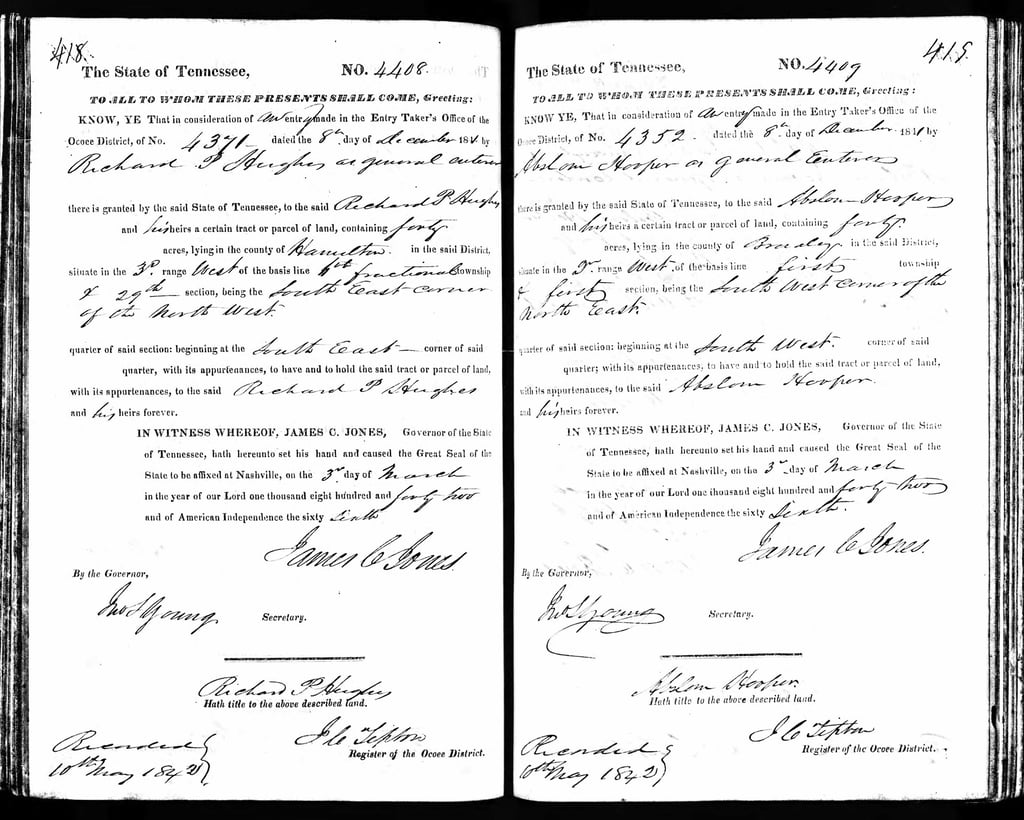 418.
The State of Tennessee, NO. 4408.
TO ALL TO WHOM THESE PRESENTS SHALL COME, Greeting:
KNOW, YE That in consideration of An entry made in the Entry Taker's Office of the
Ocoee District, of No. 4371 dated the 8th day of December 1841 by
Richard P Hughes as general enterer
there is granted by the said State of Tennessee, to the said Richard P Hughes
and his heirs a certain tract or parcel of land, containing forty
acres, lying in the county of Hamilton in the said District,
situate in the 3d. range West of the basis line fractional township
& 29th section, being the South East corner
of the North West.
quarter of said section: beginning at the South East corner of said
quarter, with its appurtenances, to have and to hold the said tract or parcel of land,
with its appurtenances, to the said Richard P Hughes
and his heirs forever.
IN WITNESS WHEREOF, JAMES C. JONES, Governor of the State
of Tennessee, hath hereunto set his hand and caused the Great Seal of the
State to be affixed at Nashville, on the 3rd day of March
in the year of our Lord one thousand eight hundred and forty two
and of American Independence the sixty Sixth
James C Jones.
By the Governor,
Jno S Young Secretary.
Richard P Hughes
Hath title to the above described land.
J C Tipton
Register of the Ocoee District.
Recorded
10th May 1842
419.
The State of Tennessee, NO. 4409
TO ALL TO WHOM THESE PRESENTS SHALL COME, Greeting:
KNOW YE That in consideration of An entry made in the Entry Taker's Office of the
Ocoee District, of No. 4352 dated the 8th day of December 1841 by
Abslom Hooper as general Enterer
there is granted by the said State of Tennessee, to the said Abslom Hooper
and his heirs a certain tract or parcel of land, containing forty
acres, lying in the county of Bradley in the said District,
situate in the range West of the basis line first township
& first section, being the South West corner of the
North East.
quarter of said section: beginning at the South West. corner of said
quarter; with its appurtenances, to have and to hold the said tract or parcel of land,
with its appurtenances, to the said Abslom Hooper.
and his heirs forever.
IN WITNESS WHEREOF, JAMES C. JONES, Governor of the State
of Tennessee, hath hereunto set his hand and caused the Great Seal of the
State to be affixed at Nashville, on the 3rd day of March
in the year of our Lord one thousand eight hundred and forty two
and of American Independence the sixty Sixth.
James C Jones.
By the Governor,
Jno S Young Secretary.
Abslom Hooper.
Hath title to the above described land.
J C Tipton
Register of the Ocoee District.
Recorded
10th May 1842